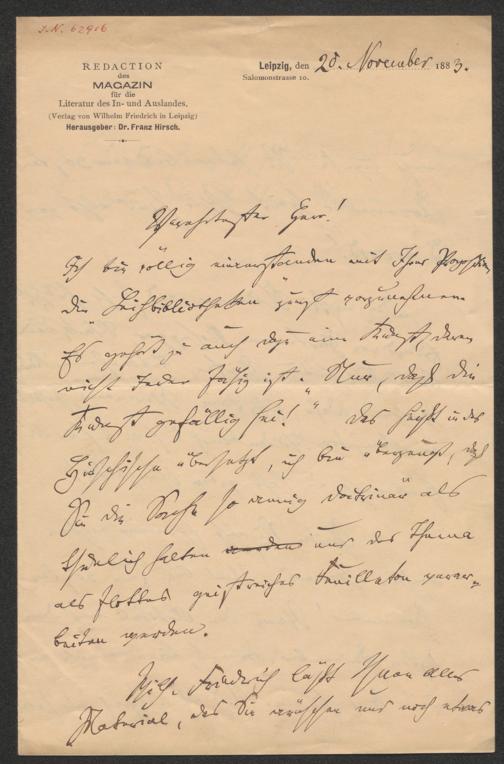 J.N. 62906
REDACTION
des
MAGAZIN
für die
Literatur des In- und Auslandes.
(Verlag von Wilhelm Friedrich in Leipzig)
Herausgeber: Dr. Franz Hirsch.
Leipzig, den 20. November 1883.
Salomonstrasse 10.
Verehrtester Herr!
Ich bin völlig einverstanden mit Ihrer
die "Leihbibliotheken" jüngst vorzunehmen.
Es gehört ja auch dazu eine Kunst, deren
nicht Jeder fähig ist. "Nur, daß die
Kunst gefällig sei!" Das heißt in das
übersetzt, ich bin überzeugt, daß
Sie die Sache so wenig doktrinär als
thunlich halten und das Thema
als flottes geistreiches Feuilleton verar-
beiten werden.
Wilh. Friedrich läßt Ihnen alles
Material, das Sie wünschen und noch etwas